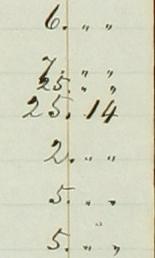 6. " "
7. " "
25. " "
25. 14
2. " "
5. " "
5. " "